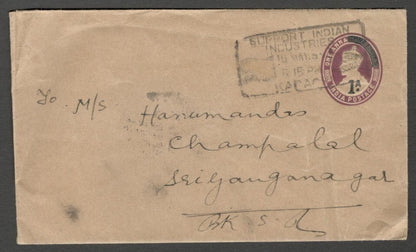 SUPPORT INDIAN
INDUSTRIES
ONE ANNA
1 a
INDIA POSTAGE
To. M/s
Hanumandas
Champalal
Sriganganagar